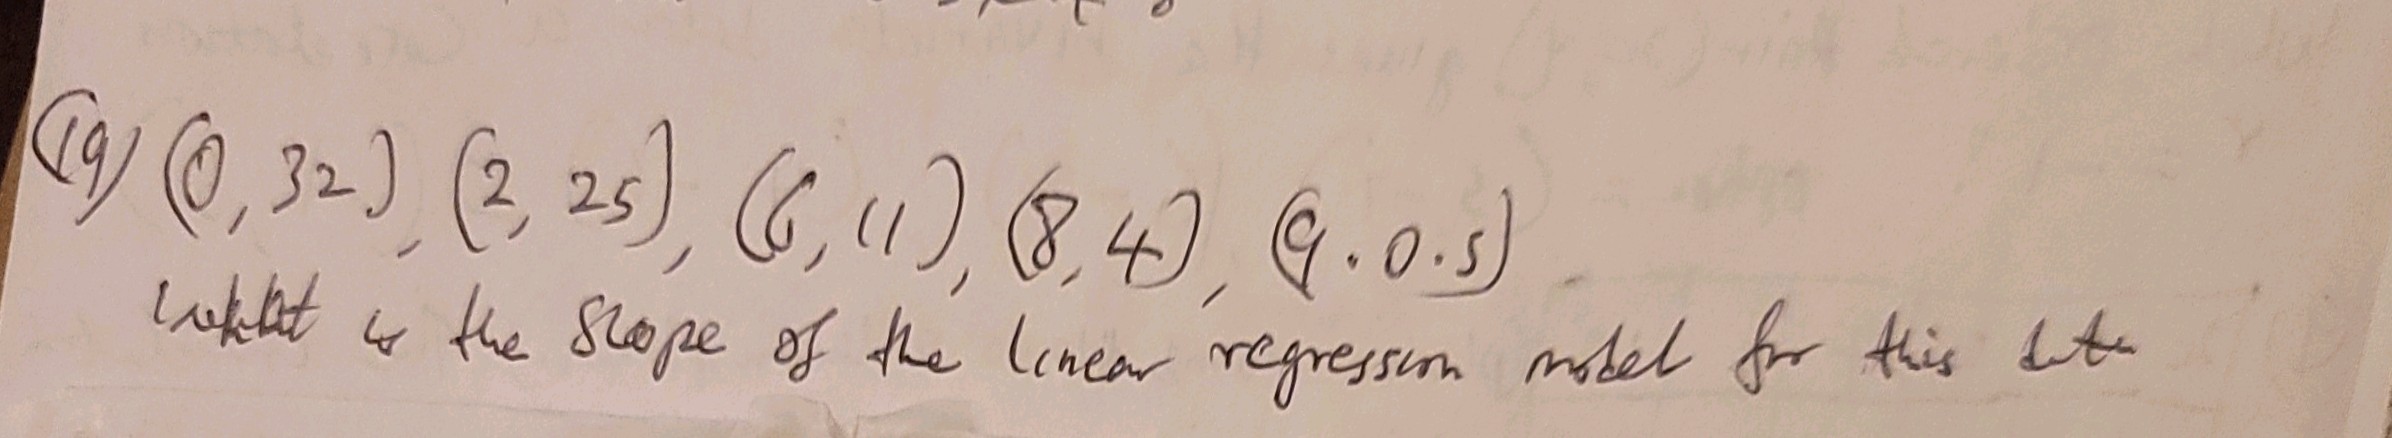 (19) (0, 32), (2, 25), (6, 11), (8, 4), (9.0.5)
what is the slope of the linear regression model for this data